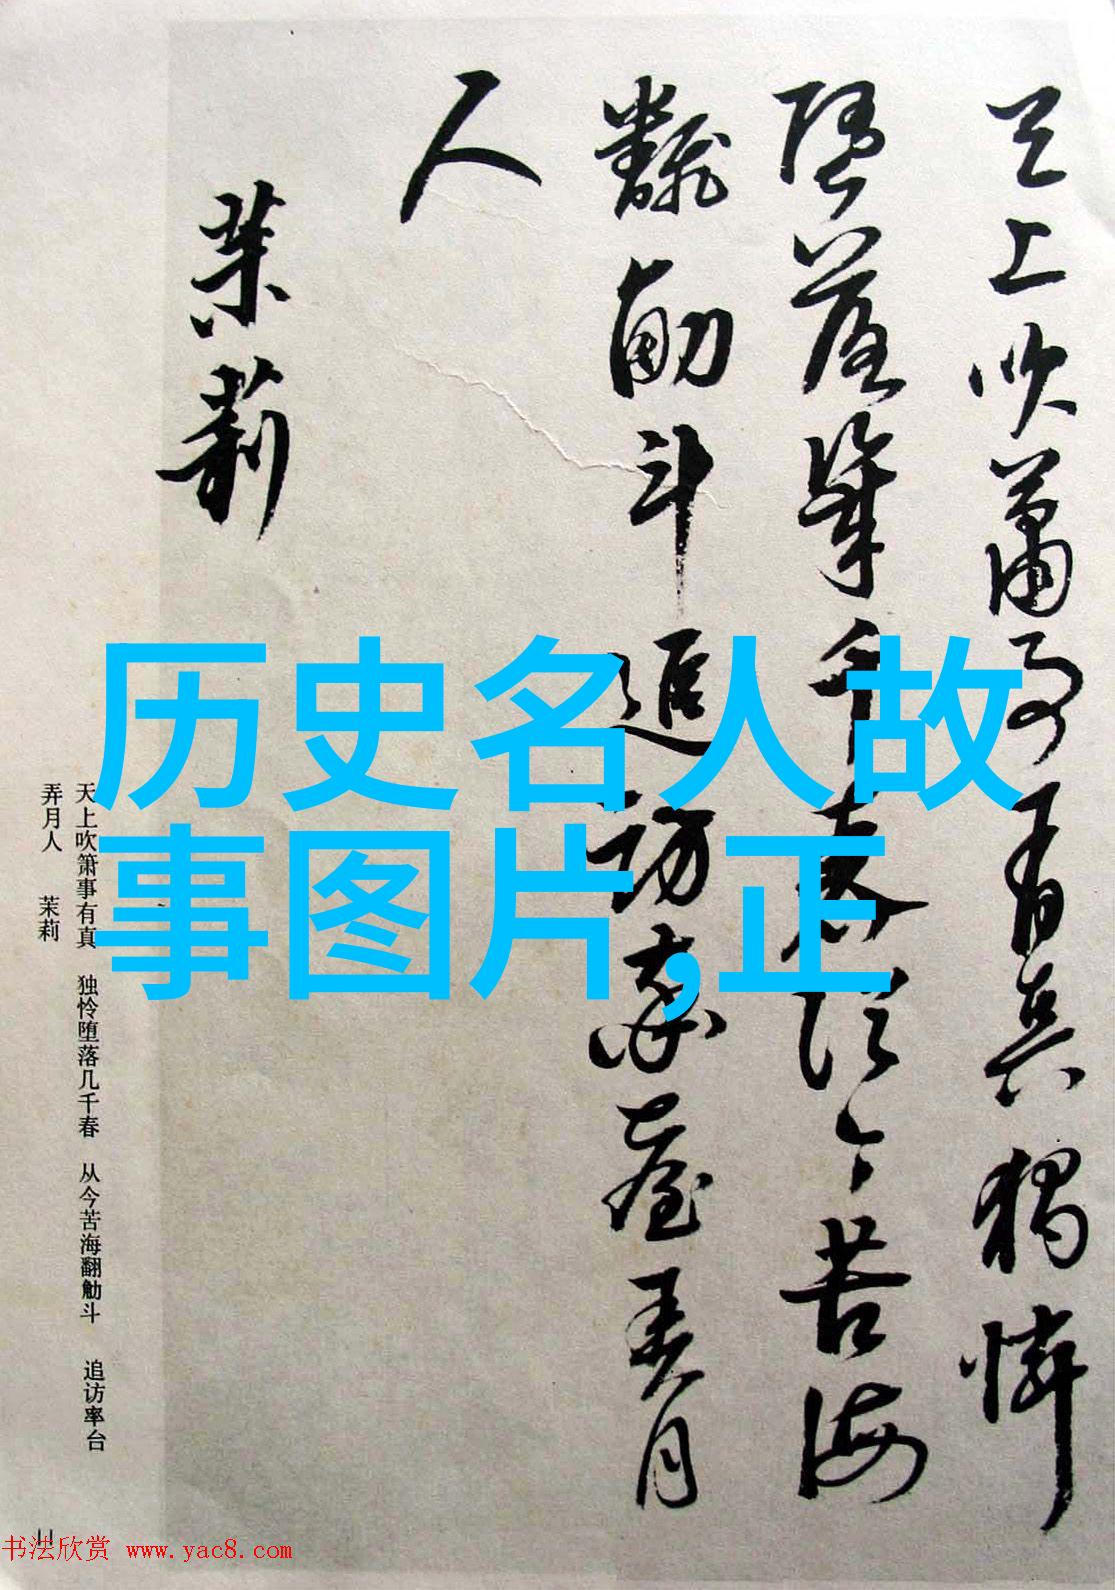 天上吹箫事有真独怜
堕落几千春从今苦海
翻觔斗追访率台弄月
人
茉莉
历史名人故
事图片,正
天上吹箫事有真 独怜堕落几千春 从今苦海翻觔斗 追访率台
弄月人 茉莉
11
书法欣赏 www.yac8.com